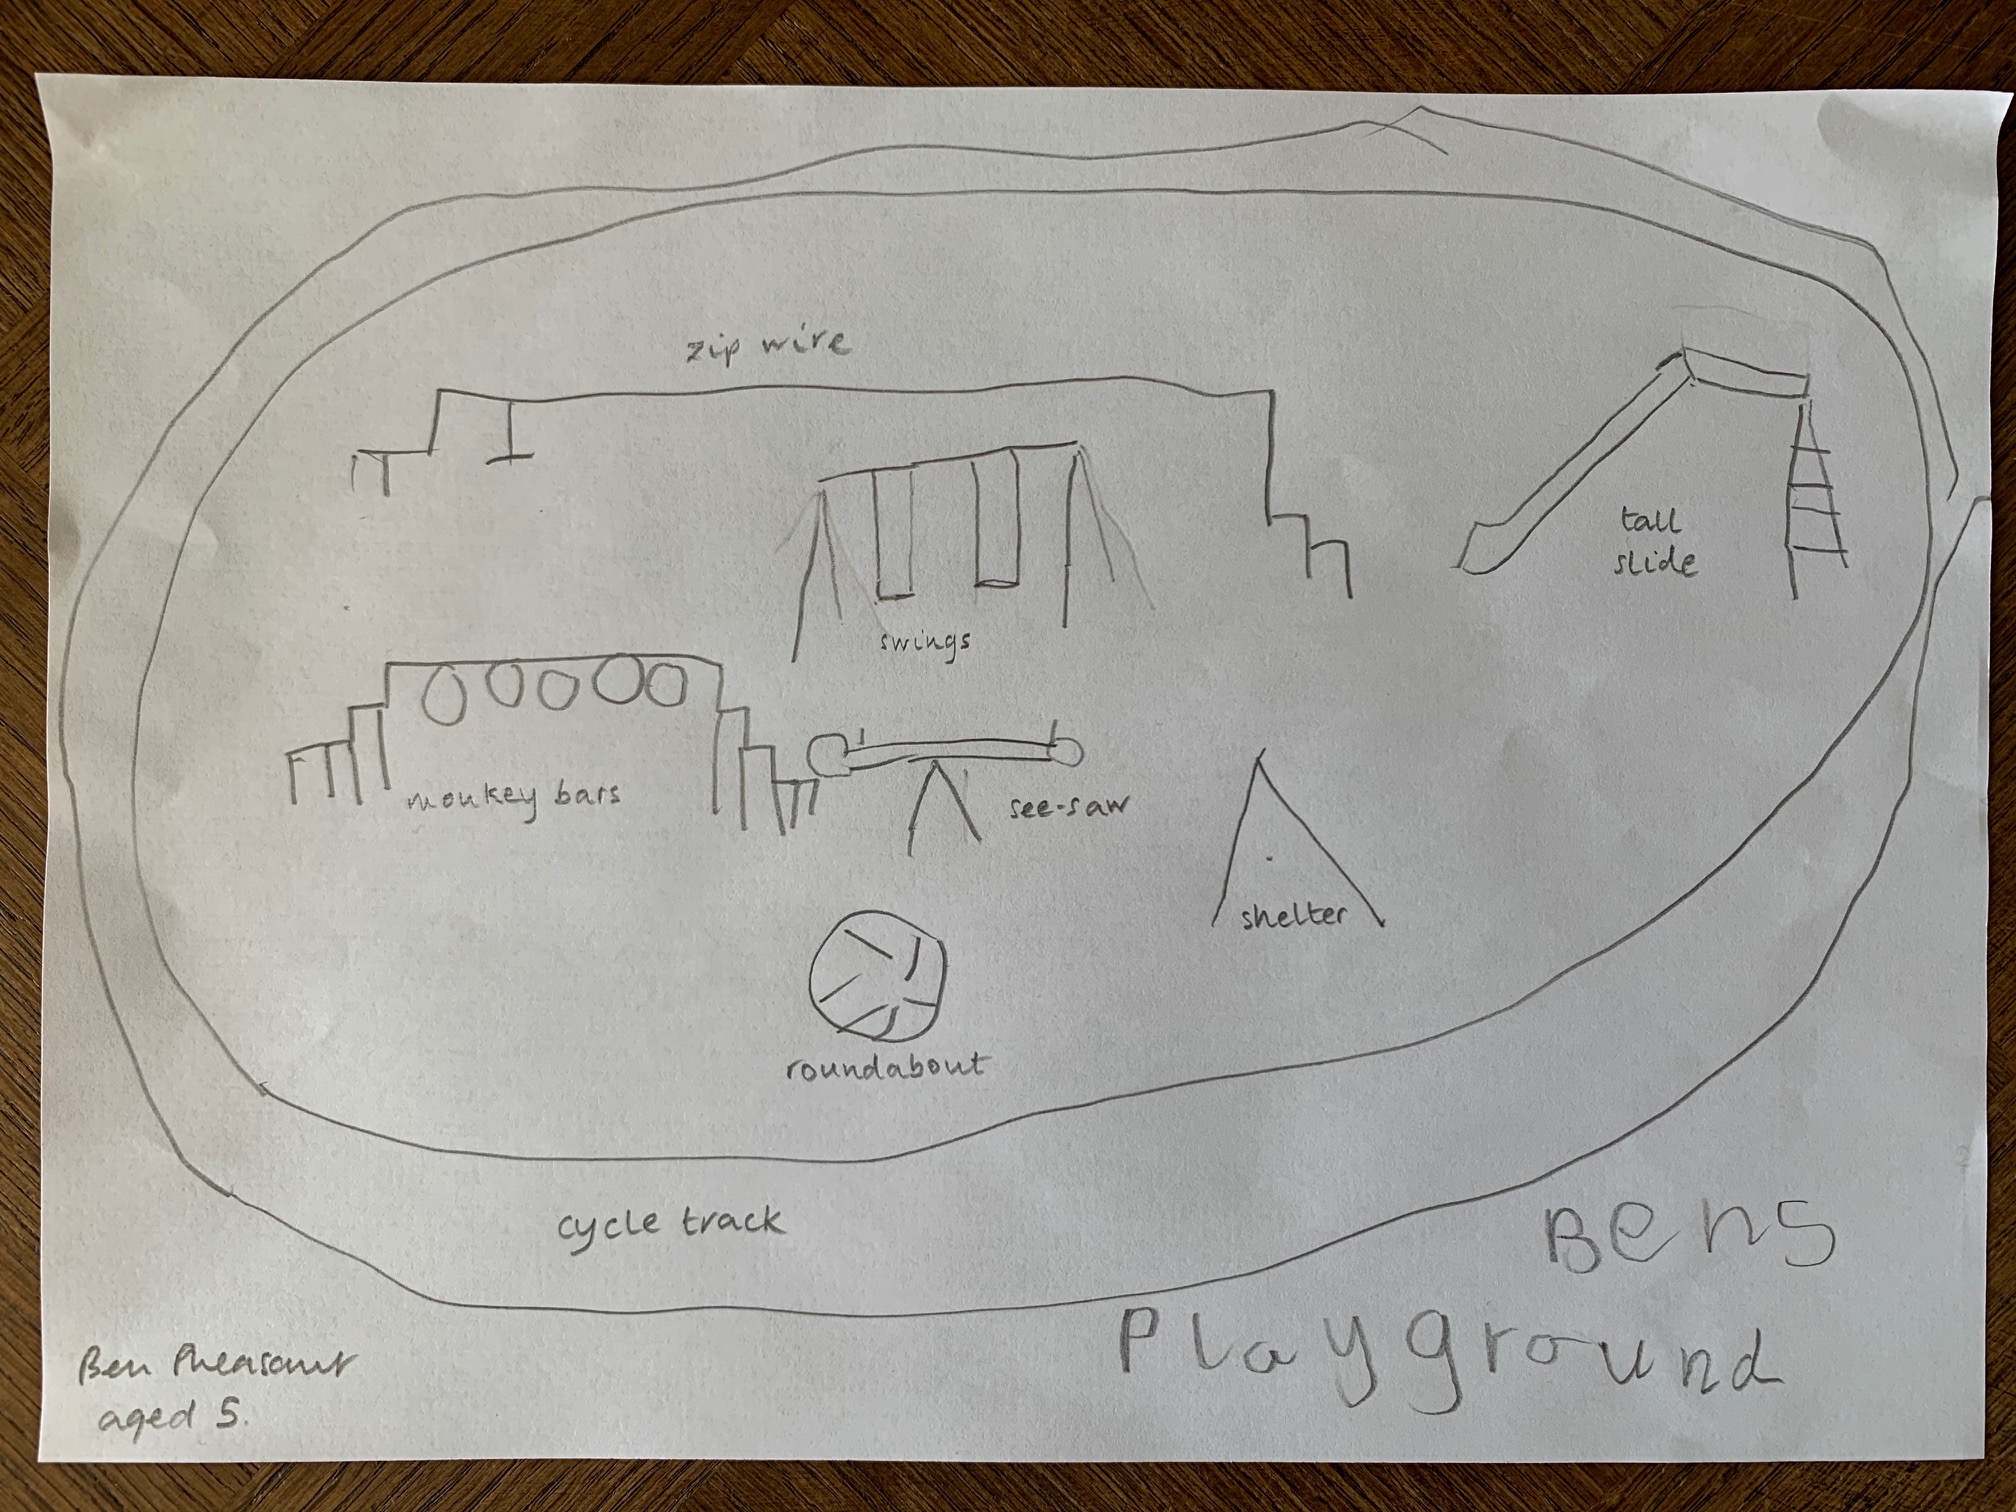 zip wire
tall
slide
swings
monkey bars
see-saw
shelter
roundabout
cycle track
Bens
Playground
Ben Pheasant
aged 5.